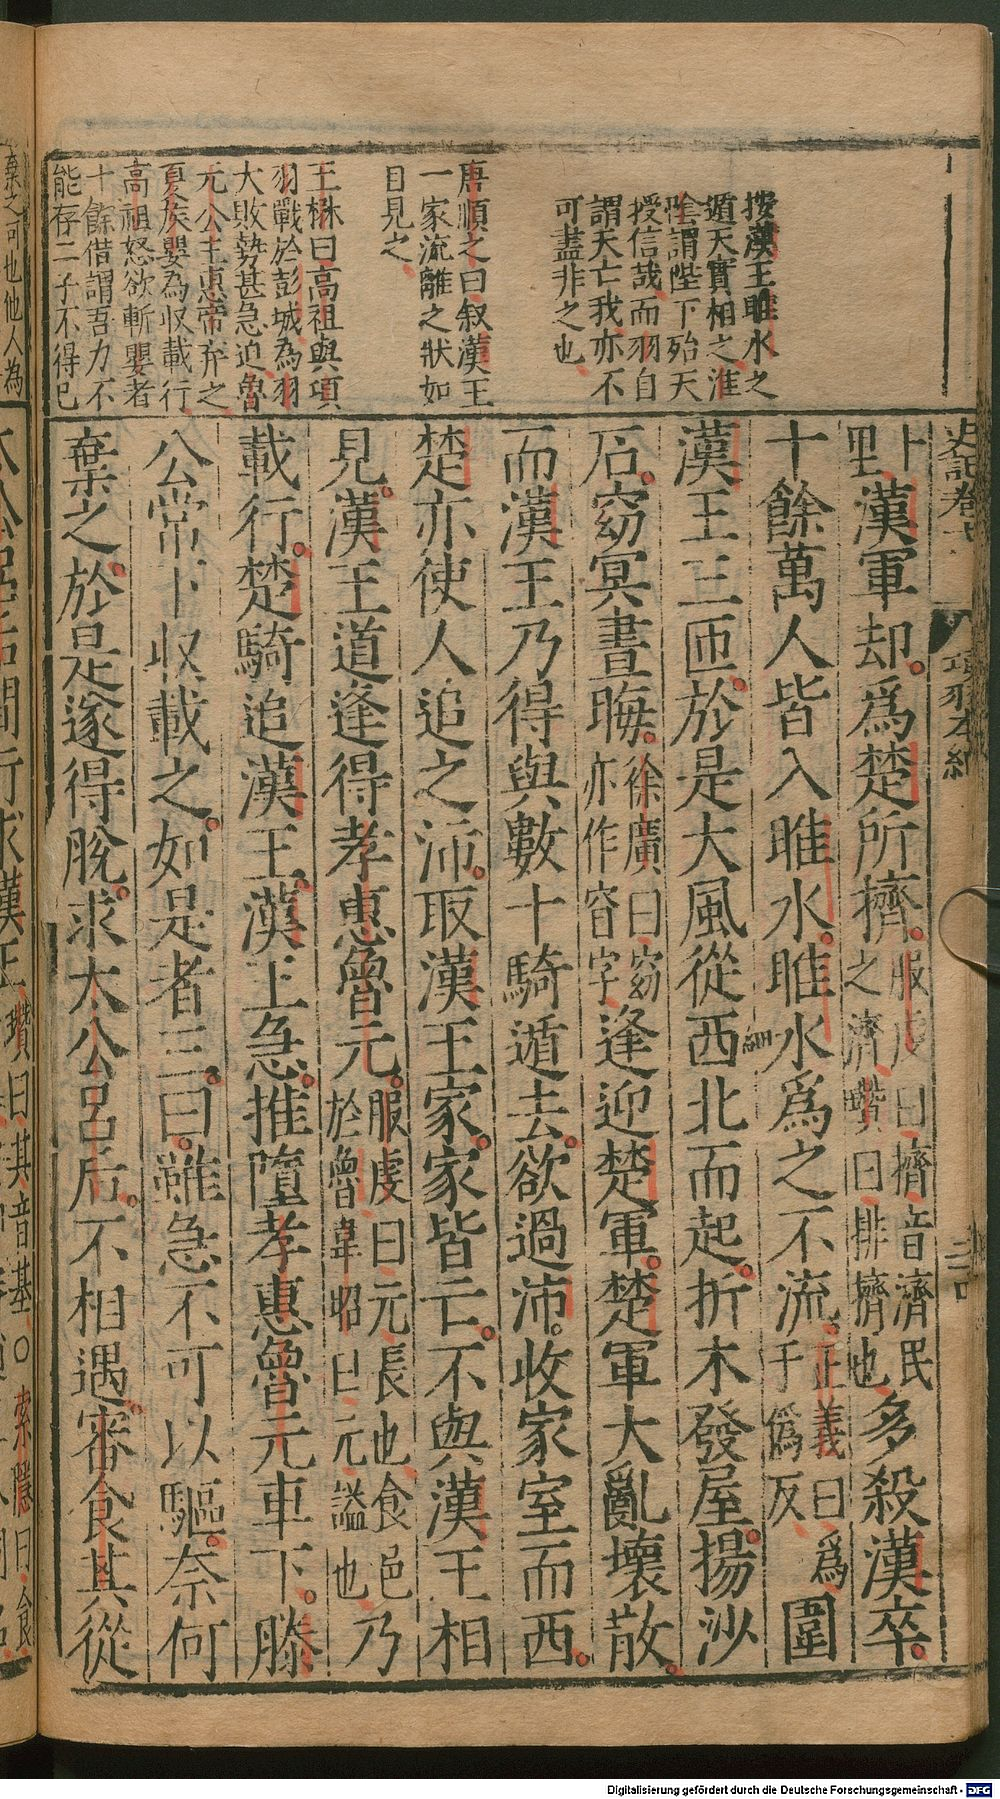 按漢王睢水之
遁天實相之淮
陰謂陛下殆天
授信哉而羽自
謂天亡我亦不
可盡非之也
唐順之曰叙漢王
一家流離之狀如
目見之
王楙曰高祖與項
羽戰於彭城為羽
大敗勢甚急迫魯
元公主惠帝弃之
夏矦嬰為収載行
高祖怒欲斬嬰者
十餘借謂吾力不
能存二子不得已
史記卷七 項羽本紀
漢軍却爲楚所擠服虔曰擠音濟民之濟瓚曰排擠也多殺漢卒
十餘萬人皆入睢水睢水爲之不流正義曰爲于僞反圍
漢王三匝於是大風從西北而起折木發屋揚沙
石窈冥晝晦徐廣曰窈亦作窅字逢迎楚軍楚軍大亂壞散
而漢王乃得與數十騎遁去欲過沛收家室而西
楚亦使人追之沛取漢王家家皆亡不與漢王相
見漢王道逢得孝惠魯元服虔曰元長也食邑於魯韋昭曰元謚也乃
載行楚騎追漢王漢王急推墮孝惠魯元車下滕
公常下収載之如是者三曰雖急不可以驅奈何
棄之於是遂得脫求太公呂后不相遇審食其從
棄之可也他人為
太公呂后間行求漢王瓚曰其音基〇索隱曰食
Digitalisierung gefördert durch die Deutsche Forschungsgemeinschaft - DFG